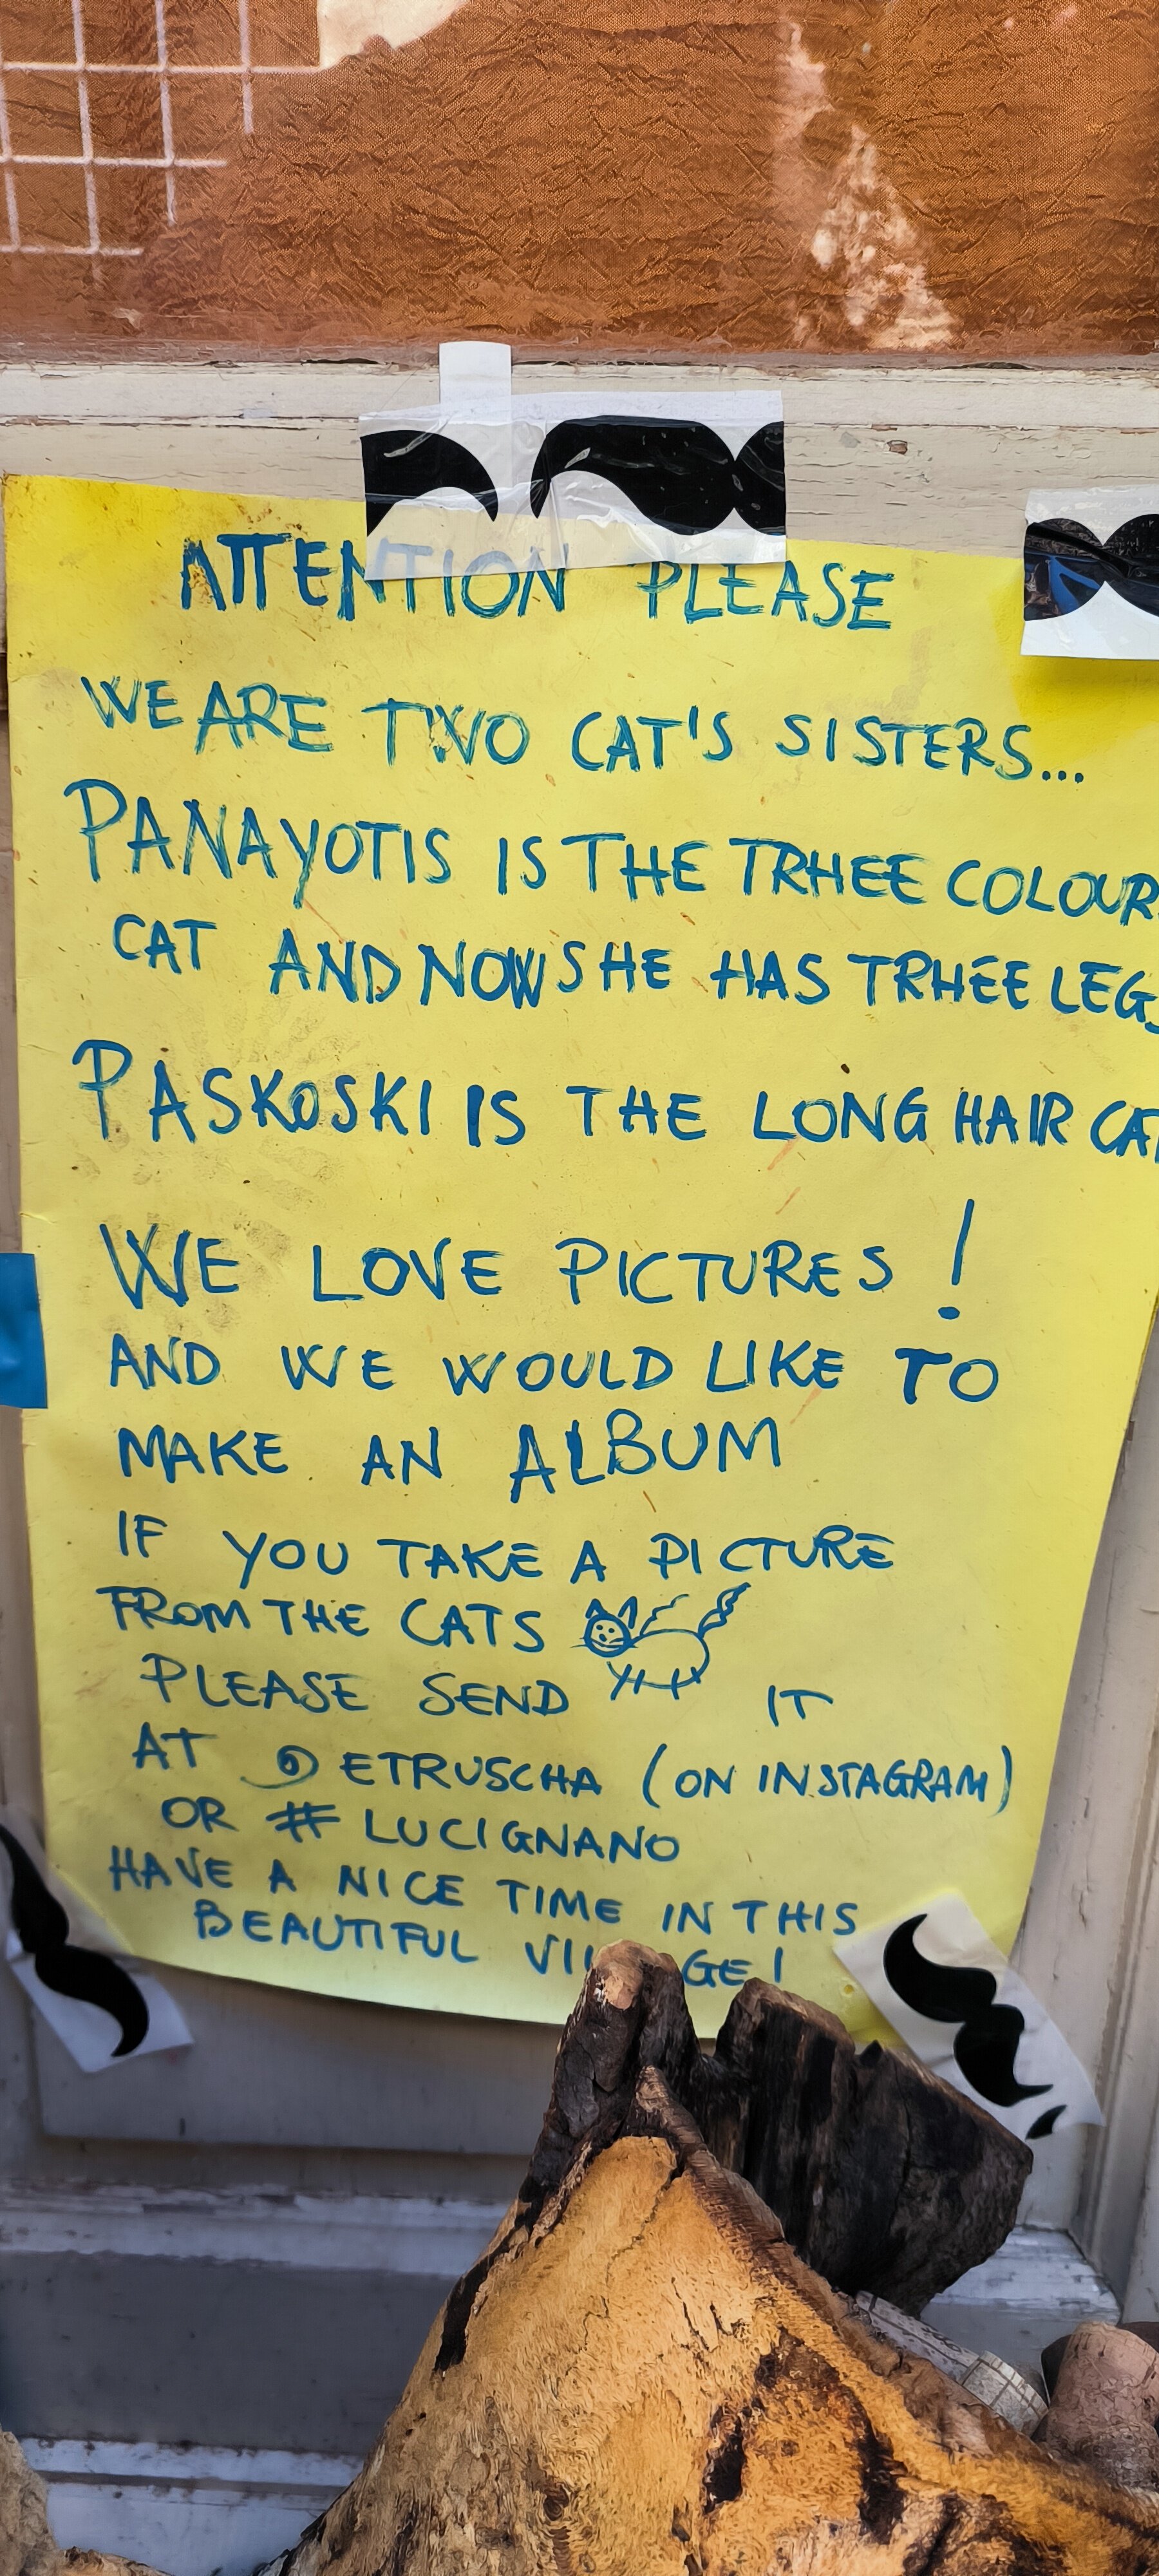 ATTENTION PLEASE
WE ARE TWO CAT'S SISTERS...
PANAYOTIS IS THE TRHEE COLOUR
CAT AND NOW SHE HAS TRHEE LEGS
PASKOSKI IS THE LONG HAIR CAT
WE LOVE PICTURES !
AND WE WOULD LIKE TO
MAKE AN ALBUM
IF YOU TAKE A PICTURE
FROM THE CATS
PLEASE SEND IT
AT @ETRUSCHA (ON INSTAGRAM)
OR # LUCIGNANO
HAVE A NICE TIME IN THIS
BEAUTIFUL